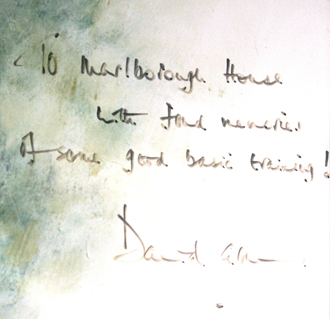 To Marlborough House
with fond memories
of some good basic training!
David